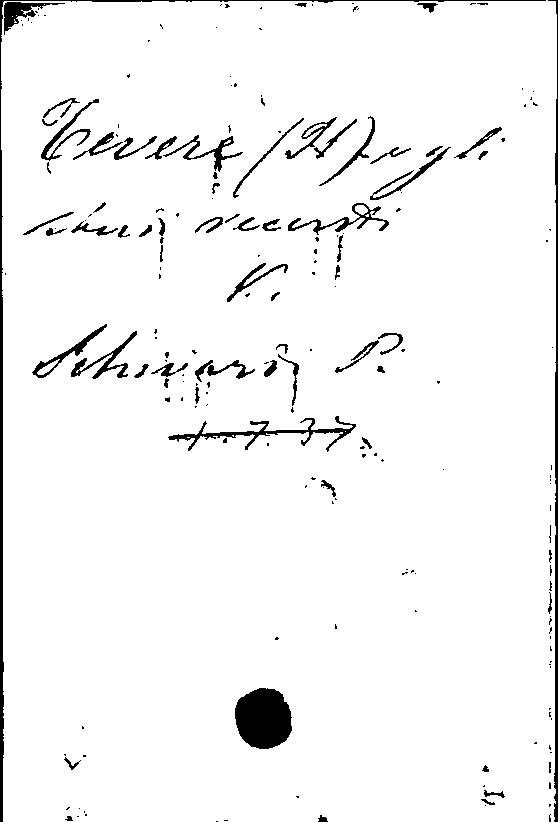 Tevere (Il) e gli
studi recenti
V.
Schwarz P.
1.7.37